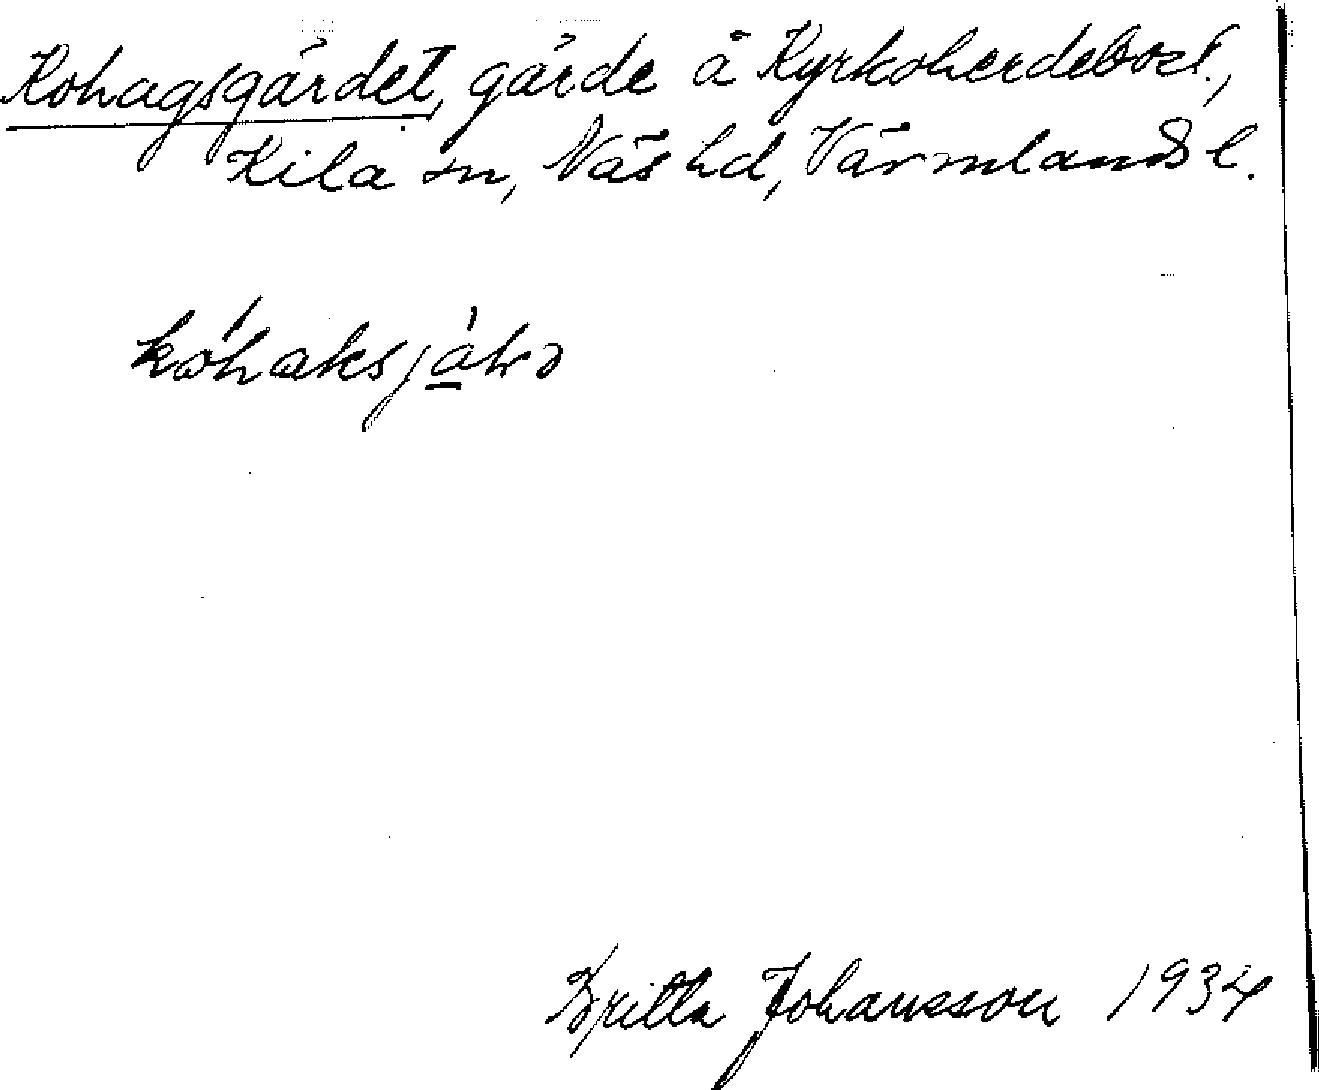 Kohagsgärdet, gärde å Kyrkoherdebost.,
Kila sn, Näs hd, Värmlands l.
Britta Johansson 1934